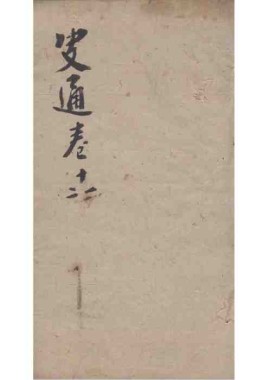 史通卷十一二